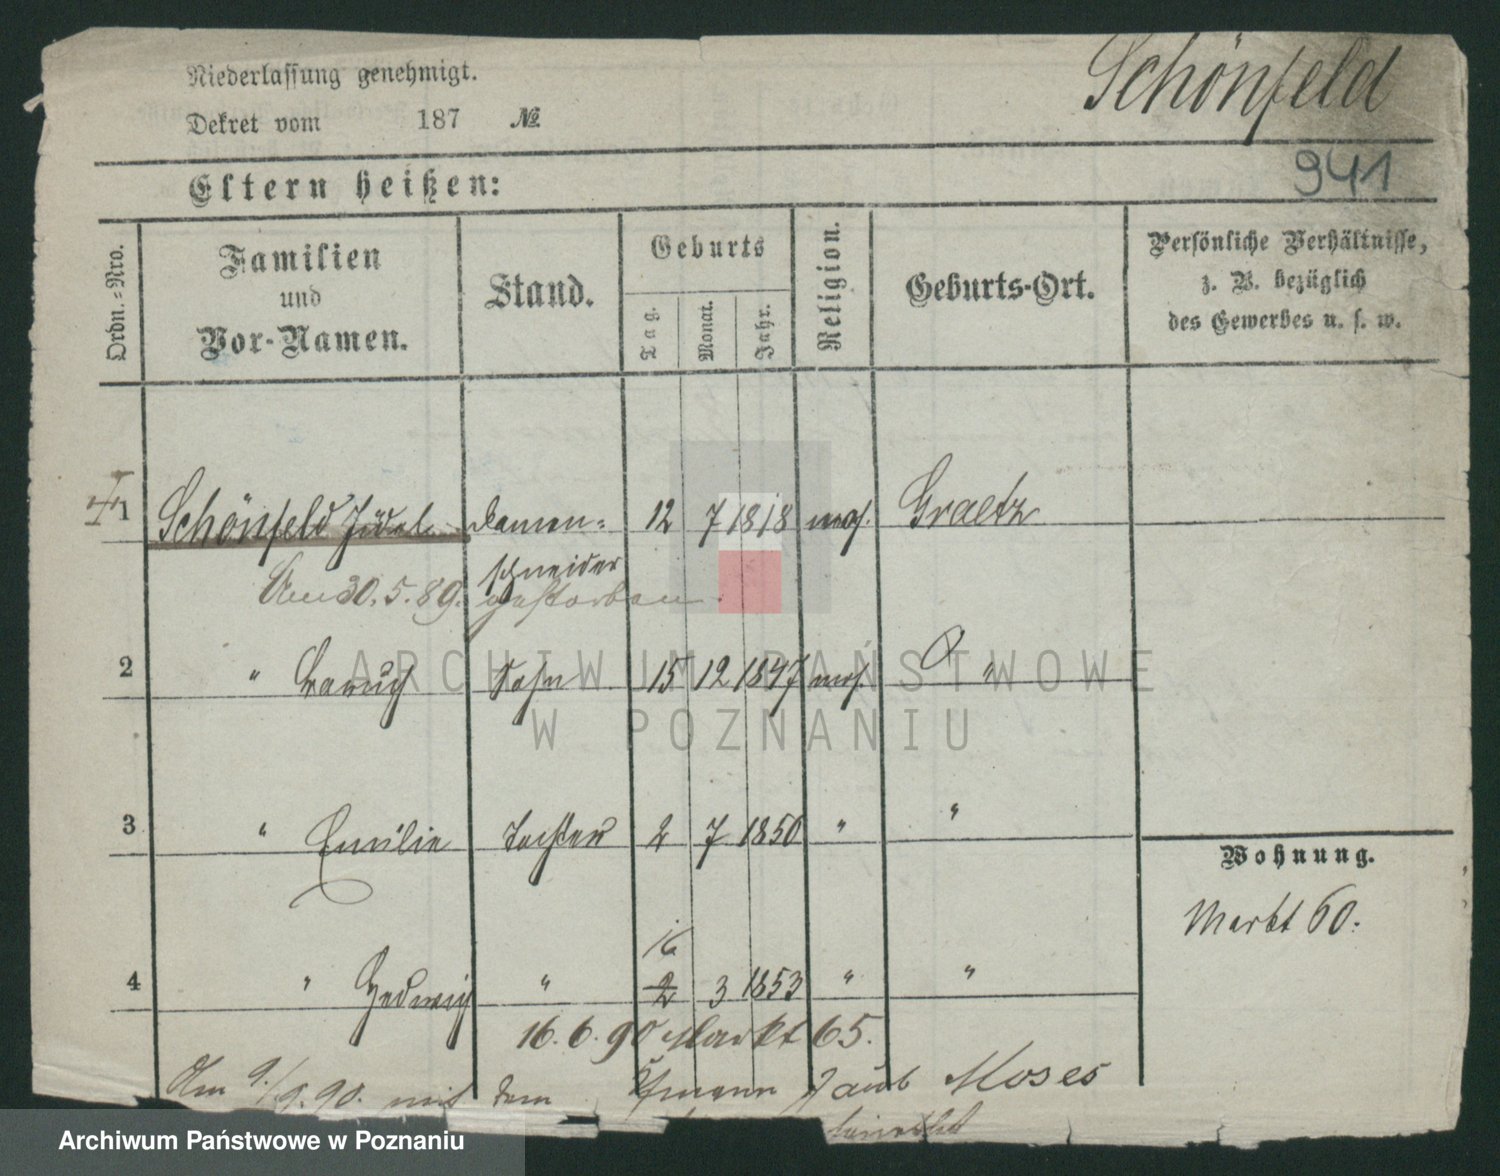 Niederlassung genehmigt.
Schönfeld
Dekret vom 187 №
941
Eltern heißen:
Ordn.-Nro.
Familien und Vor-Namen.
Stand.
Geburts
Tag.
Monat.
Jahr.
Religion.
Geburts-Ort.
Persönliche Verhältnisse,
z. B. bezüglich
des Gewerbes u. s. w.
1 Schönfeld Judel Damen- 12 7 1818 mos. Graetz
schneider
Am 30.5.89. gestorben.
2 " Baruch Sohn 15 12 1847 mos. "
3 " Emilie Tochter 2 7 1850 " "
Wohnung.
Markt 60.
16
4 " Hedwig " 2 3 1853 " "
16.6.90 Markt 65.
Am 9./9.90. mit dem Moses
ARCHIWUM PAŃSTWOWE
W POZNANIU
Archiwum Państwowe w Poznaniu